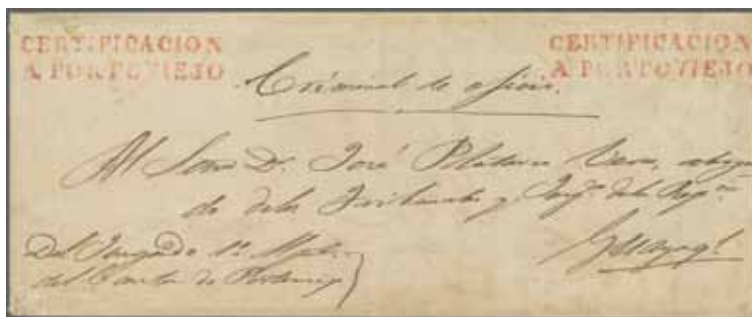 CERTIFICACION
A PORTOVIEJO
CERTIFICACION
A PORTOVIEJO
Criminal de oficio.
Al Señor Dr. José
do de los Tribunales y de la Repca
Guayaql
Del Juzgado 1o
del Canton de Portoviejo